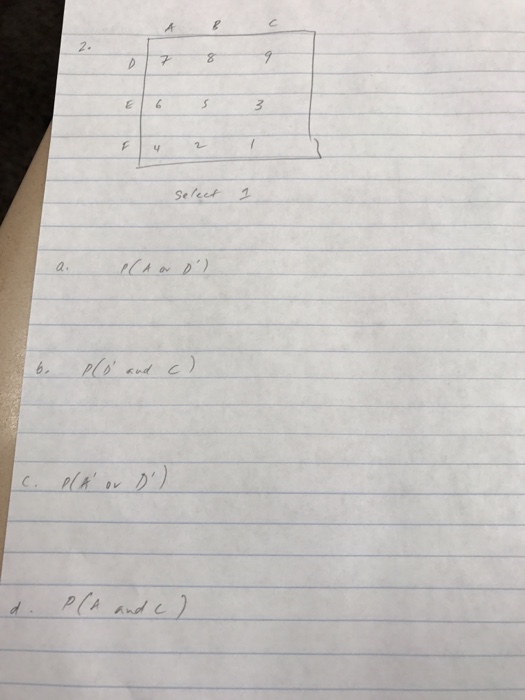 A B C
2.
D 7 8 9
E 6 5 3
F 4 2 1
Select 1
a. P(A or D')
b. P(D' and C)
c. P(A' or D')
d. P(A and C)